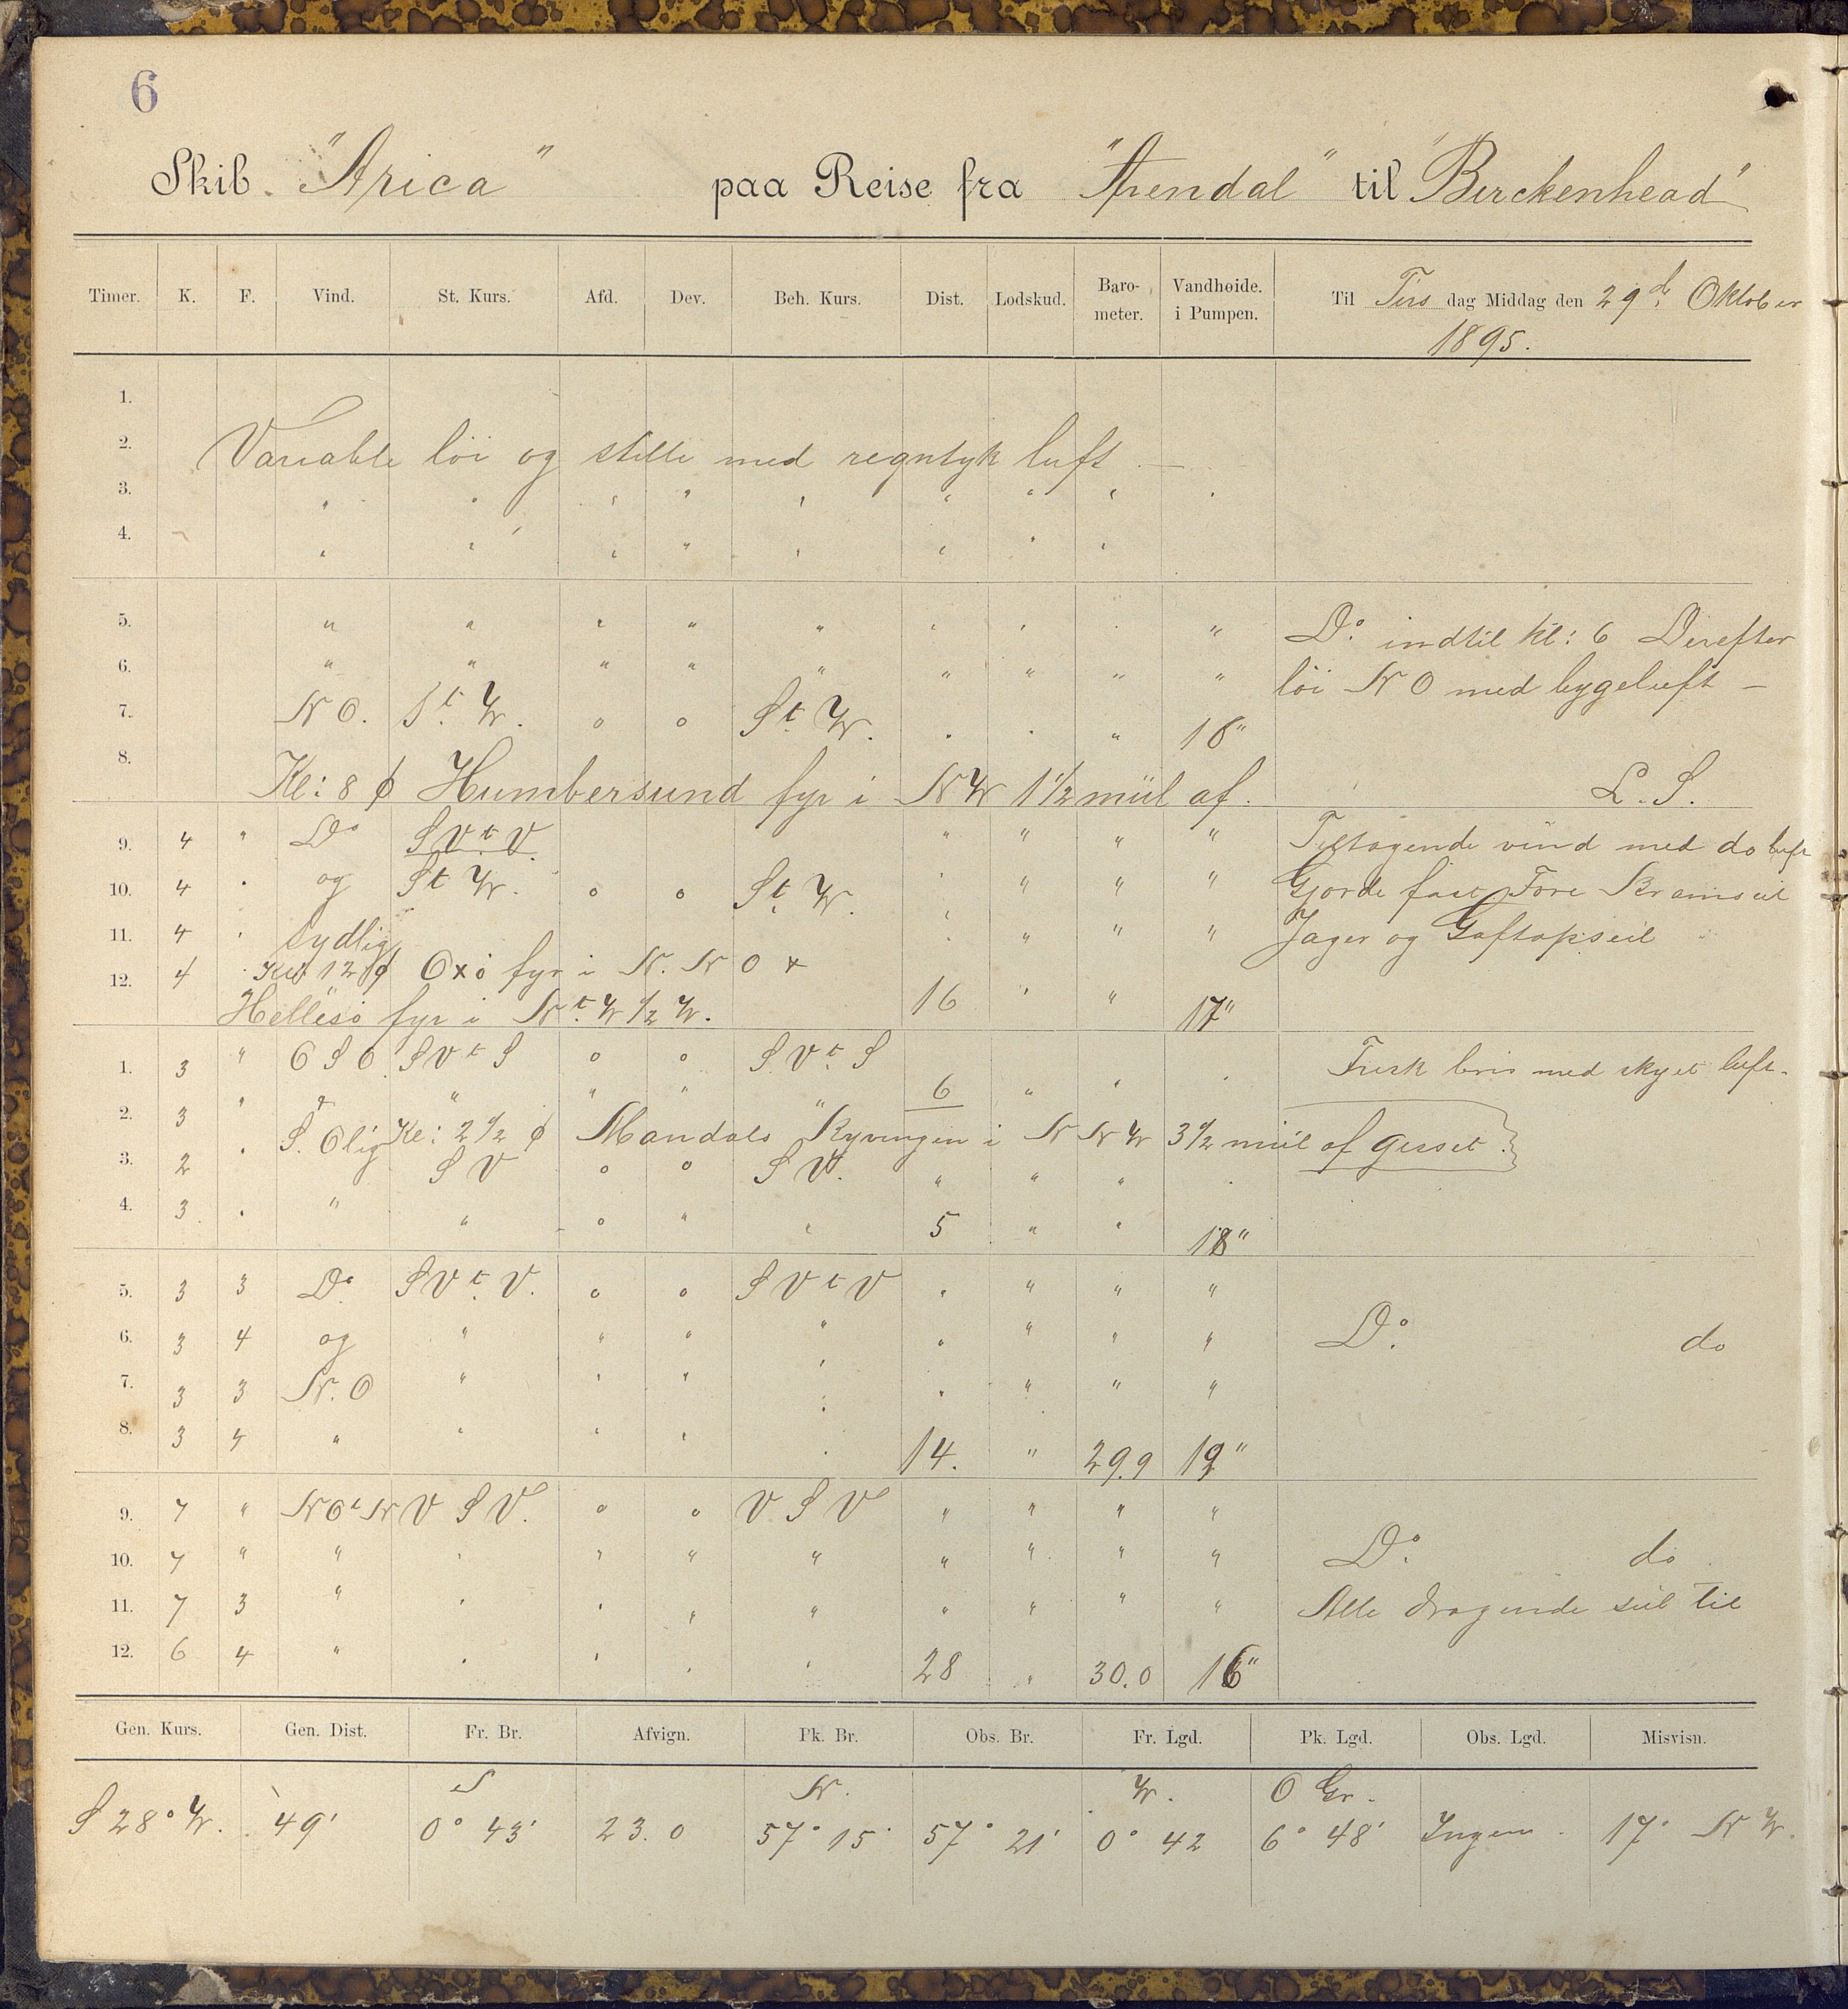 6
Skib. "Arica" paa Reise fra "Arendal" til "Birckenhead"
Timer. K. F. Vind. St. Kurs. Afd. Dev. Beh. Kurs. Dist. Lodskud. Baro-meter. Vandhøide. i Pumpen. Til Tirs dag Middag den 29de Oktober
1895.
1.
2. Variable löi og stille med regntyk luft. —
3. " " " " " " " " "
4. " " " " " " " "
5. " " " " " " " " " Do. indtil Kl: 6 Derefter
6. " " " " " " " " " löi N O med bygeluft —
7. N O. St. W. o o St. W. " " " 16"
8. Kl: 8 ϕ Humbersund fyr i N W 1 1/2 miil af. L. S.
9. 4 " Do S V t. V. " " " " Tiltagende vind med do luft
10. 4 " og St W. o o St. W. " " " " Gjorde fast Fore Bramseil
11. 4 " Sydlig " " " " Jager og Gaftopseil
Kl 12 ϕ Oxö fyr i N. N O &
12. 4 Hellesö fyr i N t. W 1/2 W. 16 " " 17"
1. 3 " O S O S V t S o o S V t. S " " " Frisk bris med skyet luft.
2. 3 " & " " " " 6 " "
S. Olig Kl: 2 1/2 ϕ Mandals Ryvingen i N N W 3 1/2 miil af gisset.
3. 2 " S V o o S V. " " " "
4. 3 " " " o " " 5 " " 18"
5. 3 3 Do. S V t. V. o o S V t V " " " "
6. 3 4 og " " " " " " " " Do. do
7. 3 3 N. O " " " " " " " "
8. 3 4 " " " " " 14. " 29.9 19"
9. 7 " N O t N V S V. o o V. S V " " " "
10. 7 " " " " " " " " " " Do. do
11. 7 3 " " " " " " " " " Alle dragende seil til
12. 6 4 " " " " " 28 " 30.0 16"
Gen. Kurs. Gen. Dist. Fr. Br. Afvign. Pk. Br. Obs. Br. Fr. Lgd. Pk. Lgd. Obs. Lgd. Misvisn.
S N. W. O Gr.
S 28° W. 49' 0° 43' 23.0 57° 15' 57° 21' 0° 42 6° 48' Ingen. 17° N W.